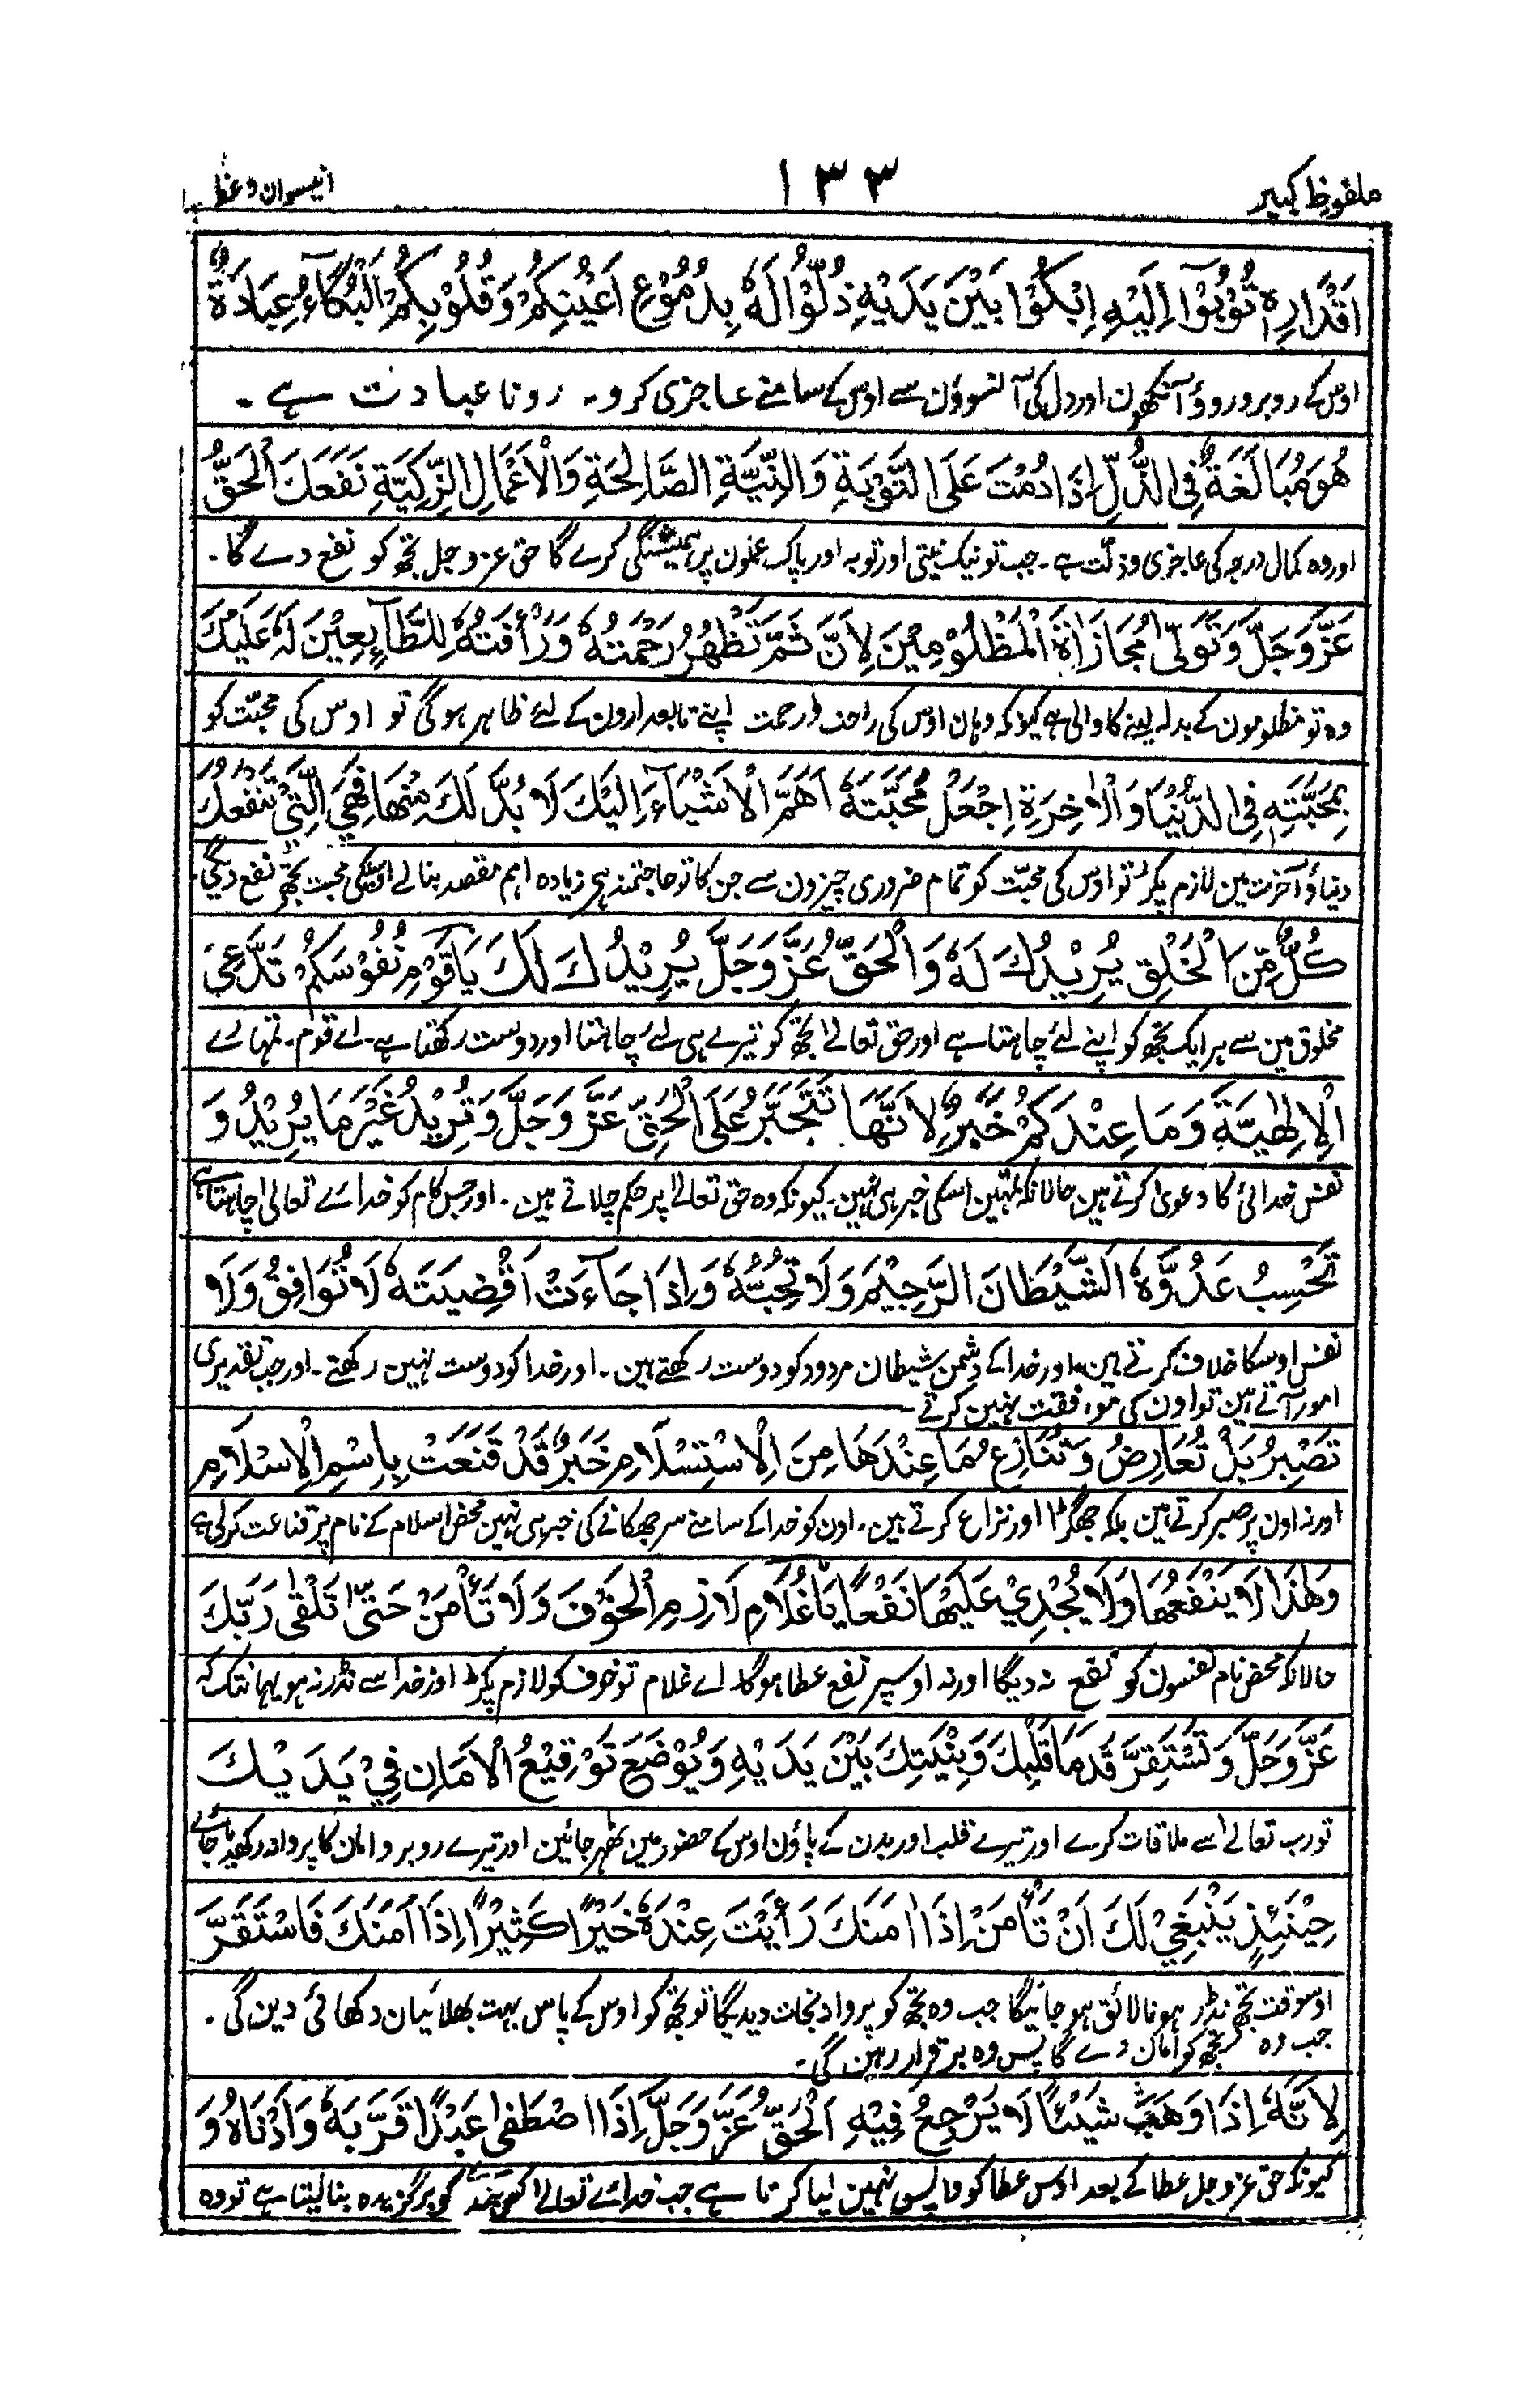 ملفوظ کبیر
۱۳۳
انیسوان وعظ
اَقْدَارِهٖ تُوْبُوْآ اِلَيْهِ اِبْكُوْا بَيْنَ يَدَيْهِ ذُلُّوْا لَهٗ بِدُمُوْعِ اَعْيُنِكُمْ وَقُلُوْبِكُمْ اَلْبُكَآءُ عِبَادَةٌ
اوس کے روبرو روؤ آنکھون اور دل کی آنسوؤن سے اوس کے سامنے عاجزی کرو۔ رونا عبادت ہے۔
هُوَ مُبَالَغَةٌ فِي الذُّلِّ اِذَا دُمْتَ عَلَى التَّوْبَةِ وَالنِّيَّةِ الصَّالِحَةِ وَالْاَعْمَالِ الزَّكِيَّةِ نَفَعَكَ الْحَقُّ
اور وہ کمال درجہ کی عاجزی و ذلت ہے۔ جب تو نیک نیتی اور توبہ اور پاک عملون پر ہمیشگی کرے گا حق عزوجل تجھ کو نفع دے گا۔
عَزَّ وَجَلَّ وَتَوَلّٰى مُجَازَاةَ الْمَظْلُوْمِيْنَ لِاَنَّ ثَمَّ تَظْهَرُ رَحْمَتُهٗ وَرَأْفَتُهٗ لِلطَّآئِعِيْنَ لَهٗ عَلَيْكَ
وہ تو مظلومون کے بدلہ لینے کا والی ہے کیونکہ وہان اوس کی رافت و رحمت اپنے تابعدارون کے لئے ظاہر ہوگی تو اوس کی محبّت کو
بِمَحَبَّتِهٖ فِي الدُّنْيَا وَالْاٰخِرَةِ اِجْعَلْ مَحَبَّتَهٗ اَهَمَّ الْاَشْيَآءِ اِلَيْكَ لَا بُدَّ لَكَ مِنْهَا فَهِيَ الَّتِيْ تَنْفَعُكَ
دنیا و آخرت مین لازم پکڑ تو اوس کی محبّت کو تمام ضروری چیزون سے جن کا تو حاجتمند ہی زیادہ اہم مقصد بنالے اوسکی محبت تجھے نفع دیگی۔
كُلٌّ مِّنَ الْخَلْقِ يُرِيْدُكَ لَهٗ وَالْحَقُّ عَزَّ وَجَلَّ يُرِيْدُكَ لَكَ يَا قَوْمِ نُفُوْسُكُمْ تَدَّعِي
مخلوق مین سے ہر ایک تجھ کو اپنے لئے چاہتا ہے اور حق تعالےٰ تجھ کو تیرے ہی لئے چاہتا اور دوست رکھتا ہے۔ اے قوم۔ تمہارے
الْاِلٰهِيَّةَ وَمَا عِنْدَكُمْ خَبَرٌ لِاَنَّهَا تَتَجَبَّرُ عَلَى الْحَقِّ عَزَّ وَجَلَّ وَتُرِيْدُ غَيْرَ مَا يُرِيْدُ وَ
نفس خدائی کا دعویٰ کرتے ہین حالانکہ تمہین اسکی خبر ہی نہین۔ کیونکہ وہ حق تعالےٰ پر حکم چلاتے ہین۔ اور جس کام کو خدائے تعالیٰ چاہتا ہے
تَحْسِبُ عَدُوَّهٗ الشَّيْطَانَ الرَّجِيْمَ وَلَا تُحِبُّهٗ وَاِذَا جَآءَتْ اَقْضِيَتُهٗ لَا تُوَافِقُ وَلَا
نفس اوسکا خلاف کرتے ہین، اور خدا کے دشمن شیطان مردود کو دوست رکھتے ہین۔ اور خدا کو دوست نہین رکھتے۔ اور جب تقدیری
امور آتے ہین تو اون کی موافقت نہین کرتے۔
تَصْبِرُ بَلْ تُعَارِضُ وَتُنَازِعُ مَا عِنْدَهَا مِنَ الْاِسْتِسْلَامِ خَبَرٌ قَدْ قَنَعَتْ بِاسْمِ الْاِسْلَامِ
اور نہ اون پر صبر کرتے ہین بلکہ جھگڑا اور نزاع کرتے ہین۔ اون کو خدا کے سامنے سر جھکانے کی خبر ہی نہین محض اسلام کے نام پر قناعت کرلی ہے
وَهٰذَا لَا يَنْفَعُهَا وَلَا يُجْدِيْ عَلَيْهَا نَفْعًا يَا غُلَامُ لَازِمِ الْخَوْفَ وَلَا تَأْمَنْ حَتّٰى تَلْقٰى رَبَّكَ
حالانکہ محض نام نفسون کو نفع نہ دیگا اور نہ اوسپر نفع عطا ہوگا۔ اے غلام تو خوف کو لازم پکڑ اور خدا سے نڈر نہ ہو یہانتک کہ
عَزَّ وَجَلَّ وَتَسْتَقِرَّ قَدَمَا قَلْبِكَ وَبِنْيَتِكَ بَيْنَ يَدَيْهِ وَيُوْضَعَ تَوْقِيْعُ الْاَمَانِ فِيْ يَدَيْكَ
تو رب تعالےٰ سے ملاقات کرے اور تیرے قلب اور بدن کے پاؤن اوس کے حضور مین ٹھہر جائین اور تیرے روبرو امان کا پروانہ رکھدیا جائے
حِيْنَئِذٍ يَنْبَغِيْ لَكَ اَنْ تَأْمَنَ اِذَا اٰمَنَكَ رَأَيْتَ عِنْدَهٗ خَيْرًا كَثِيْرًا اِذَا اٰمَنَكَ فَاسْتَقَرَّ
اوسوقت تجھے نڈر ہونا لائق ہوجائیگا جب وہ تجھ کو پروانہ نجات دیدیگا تو تجھ کو اوس کے پاس بہت بھلائیان دکھائی دین گی۔
جب وہ تجھ کو امان دے گا پس وہ برقرار رہین گی۔
لِاَنَّهٗ اِذَا وَهَبَ شَيْئًا لَا يَرْجِعُ فِيْهِ اَلْحَقُّ عَزَّ وَجَلَّ اِذَا اصْطَفٰى عَبْدًا قَرَّبَهٗ وَاَدْنَاهُ وَ
کیونکہ حق عزوجل عطا کے بعد اوس عطا کو واپس نہین لیا کرتا ہے جب خدائے تعالےٰ کسی بندے کو برگزیدہ بنالیتا ہے تو وہ